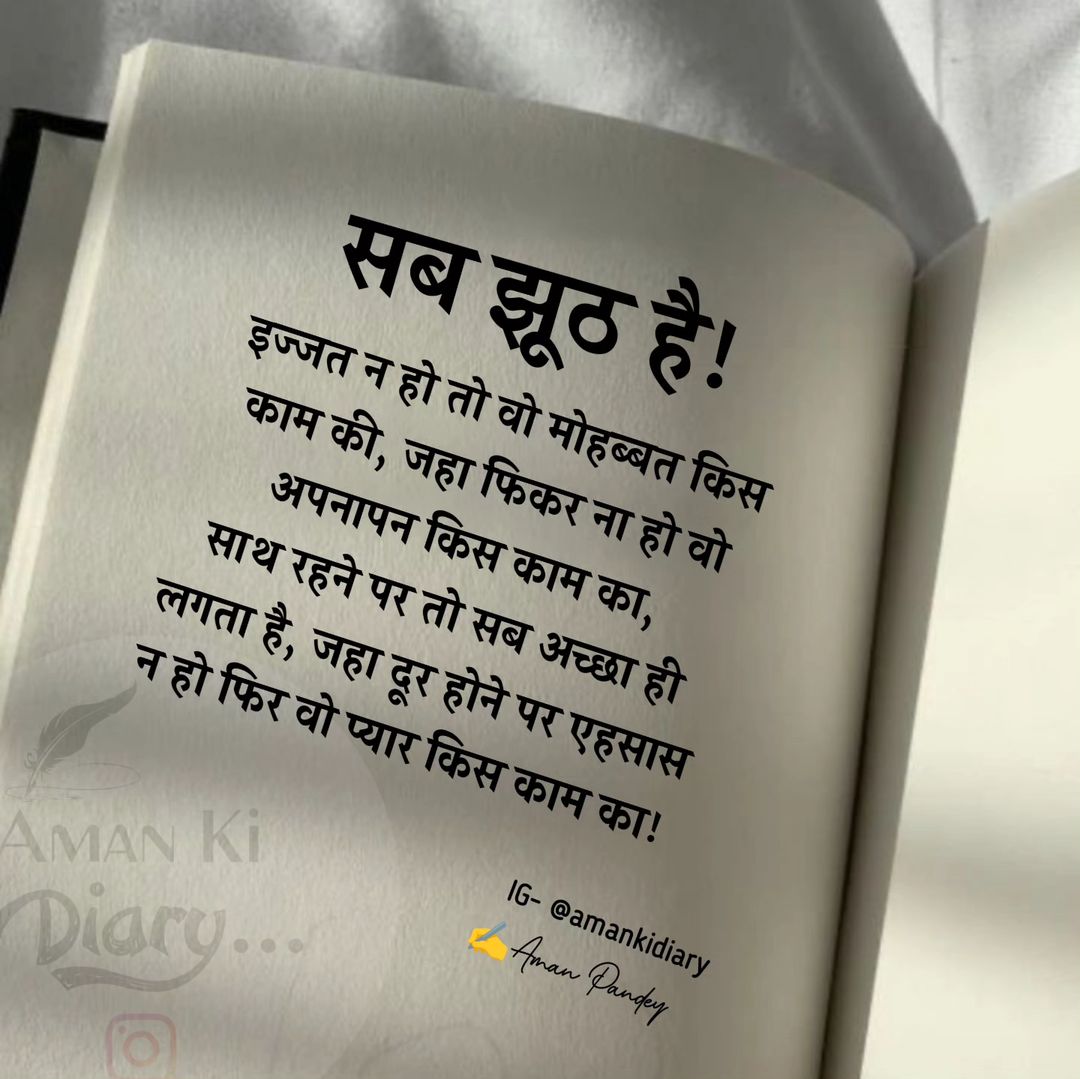 सब झूठ है!
इज्जत न हो तो वो मोहब्बत किस
काम की, जहा फिकर ना हो वो
अपनापन किस काम का,
साथ रहने पर तो सब अच्छा ही
लगता है, जहा दूर होने पर एहसास
न हो फिर वो प्यार किस काम का!
IG- @amankidiary
✍️Aman Pandey
AMAN Ki
Diary...